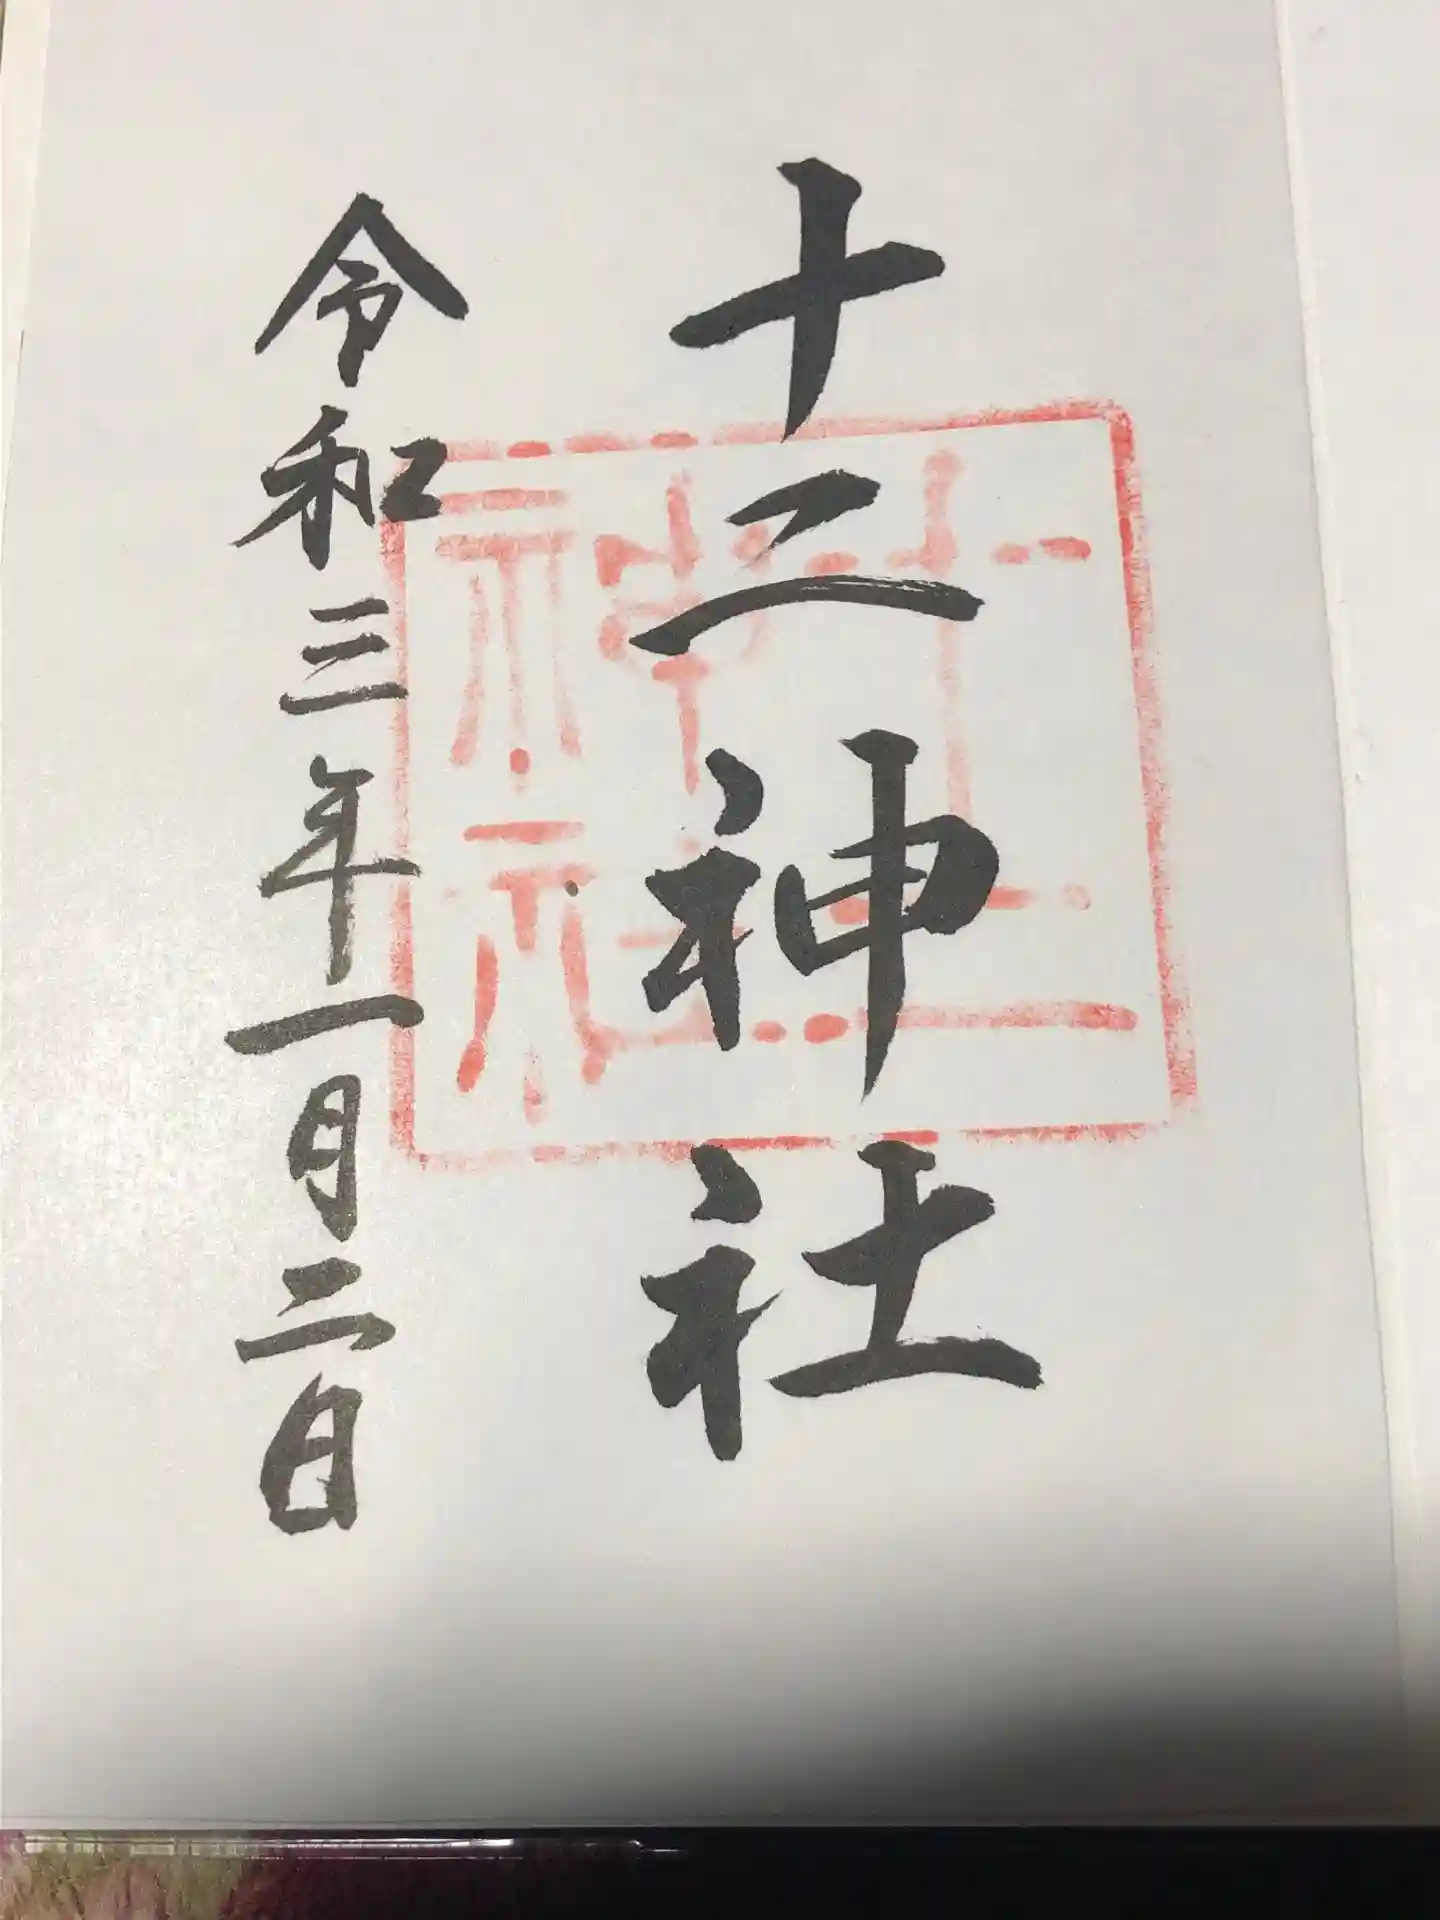 十二神社
令和三年一月二日
十二
神社